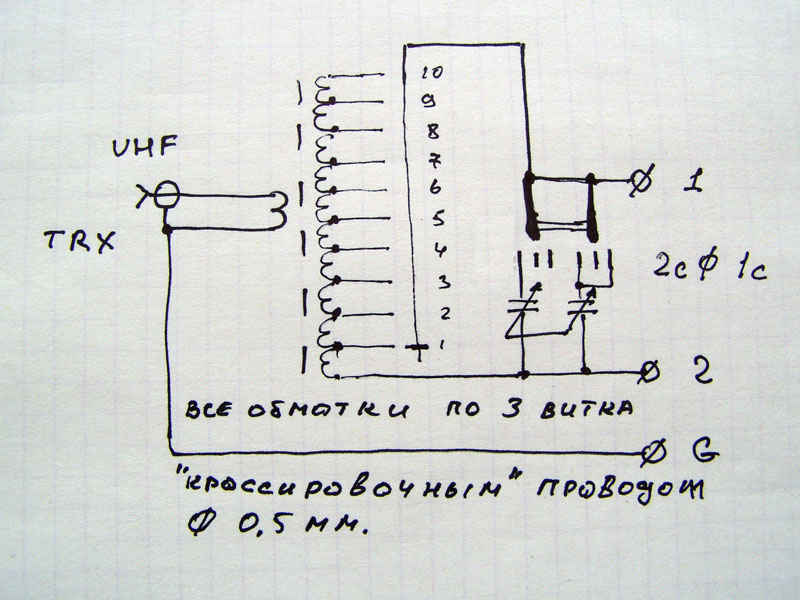 10
9
8
UHF
7
6
1
5
TRX
4
2сф 1с
3
2
1
2
ВСЕ ОБМОТКИ ПО 3 ВИТКА
G
"кроссировочным" проводом
Ø 0,5 мм.